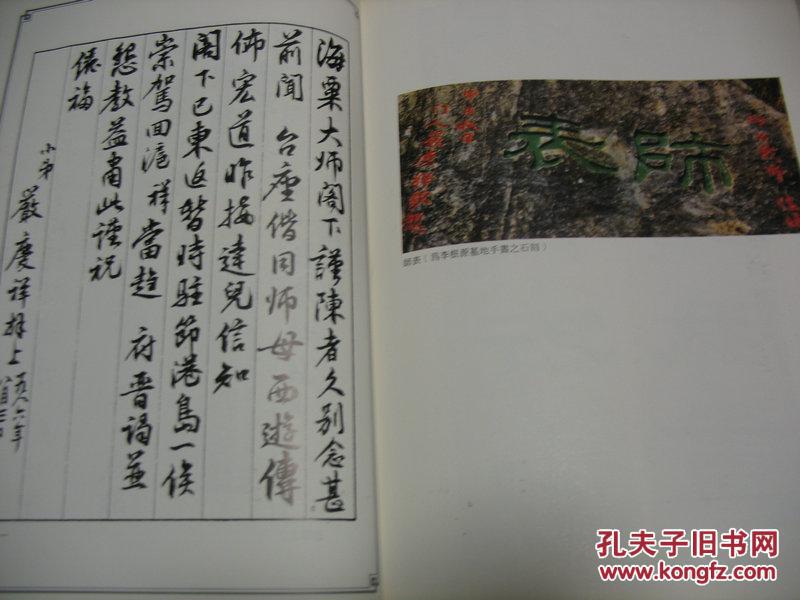 海粟大师阁下謹陳者久别念甚
前闻 台座偕同师母西遊傳
佈宏道昨接達兒信知
閣下已東返暂時駐節港島一俟
崇駕回滬祥當趋 府晋謁並
懇教益肅此謹祝
儷福
小弟 嚴慶祥拜上
師表
師表（為李根源墓地手書之石刻）
孔夫子旧书网
www.kongfz.com